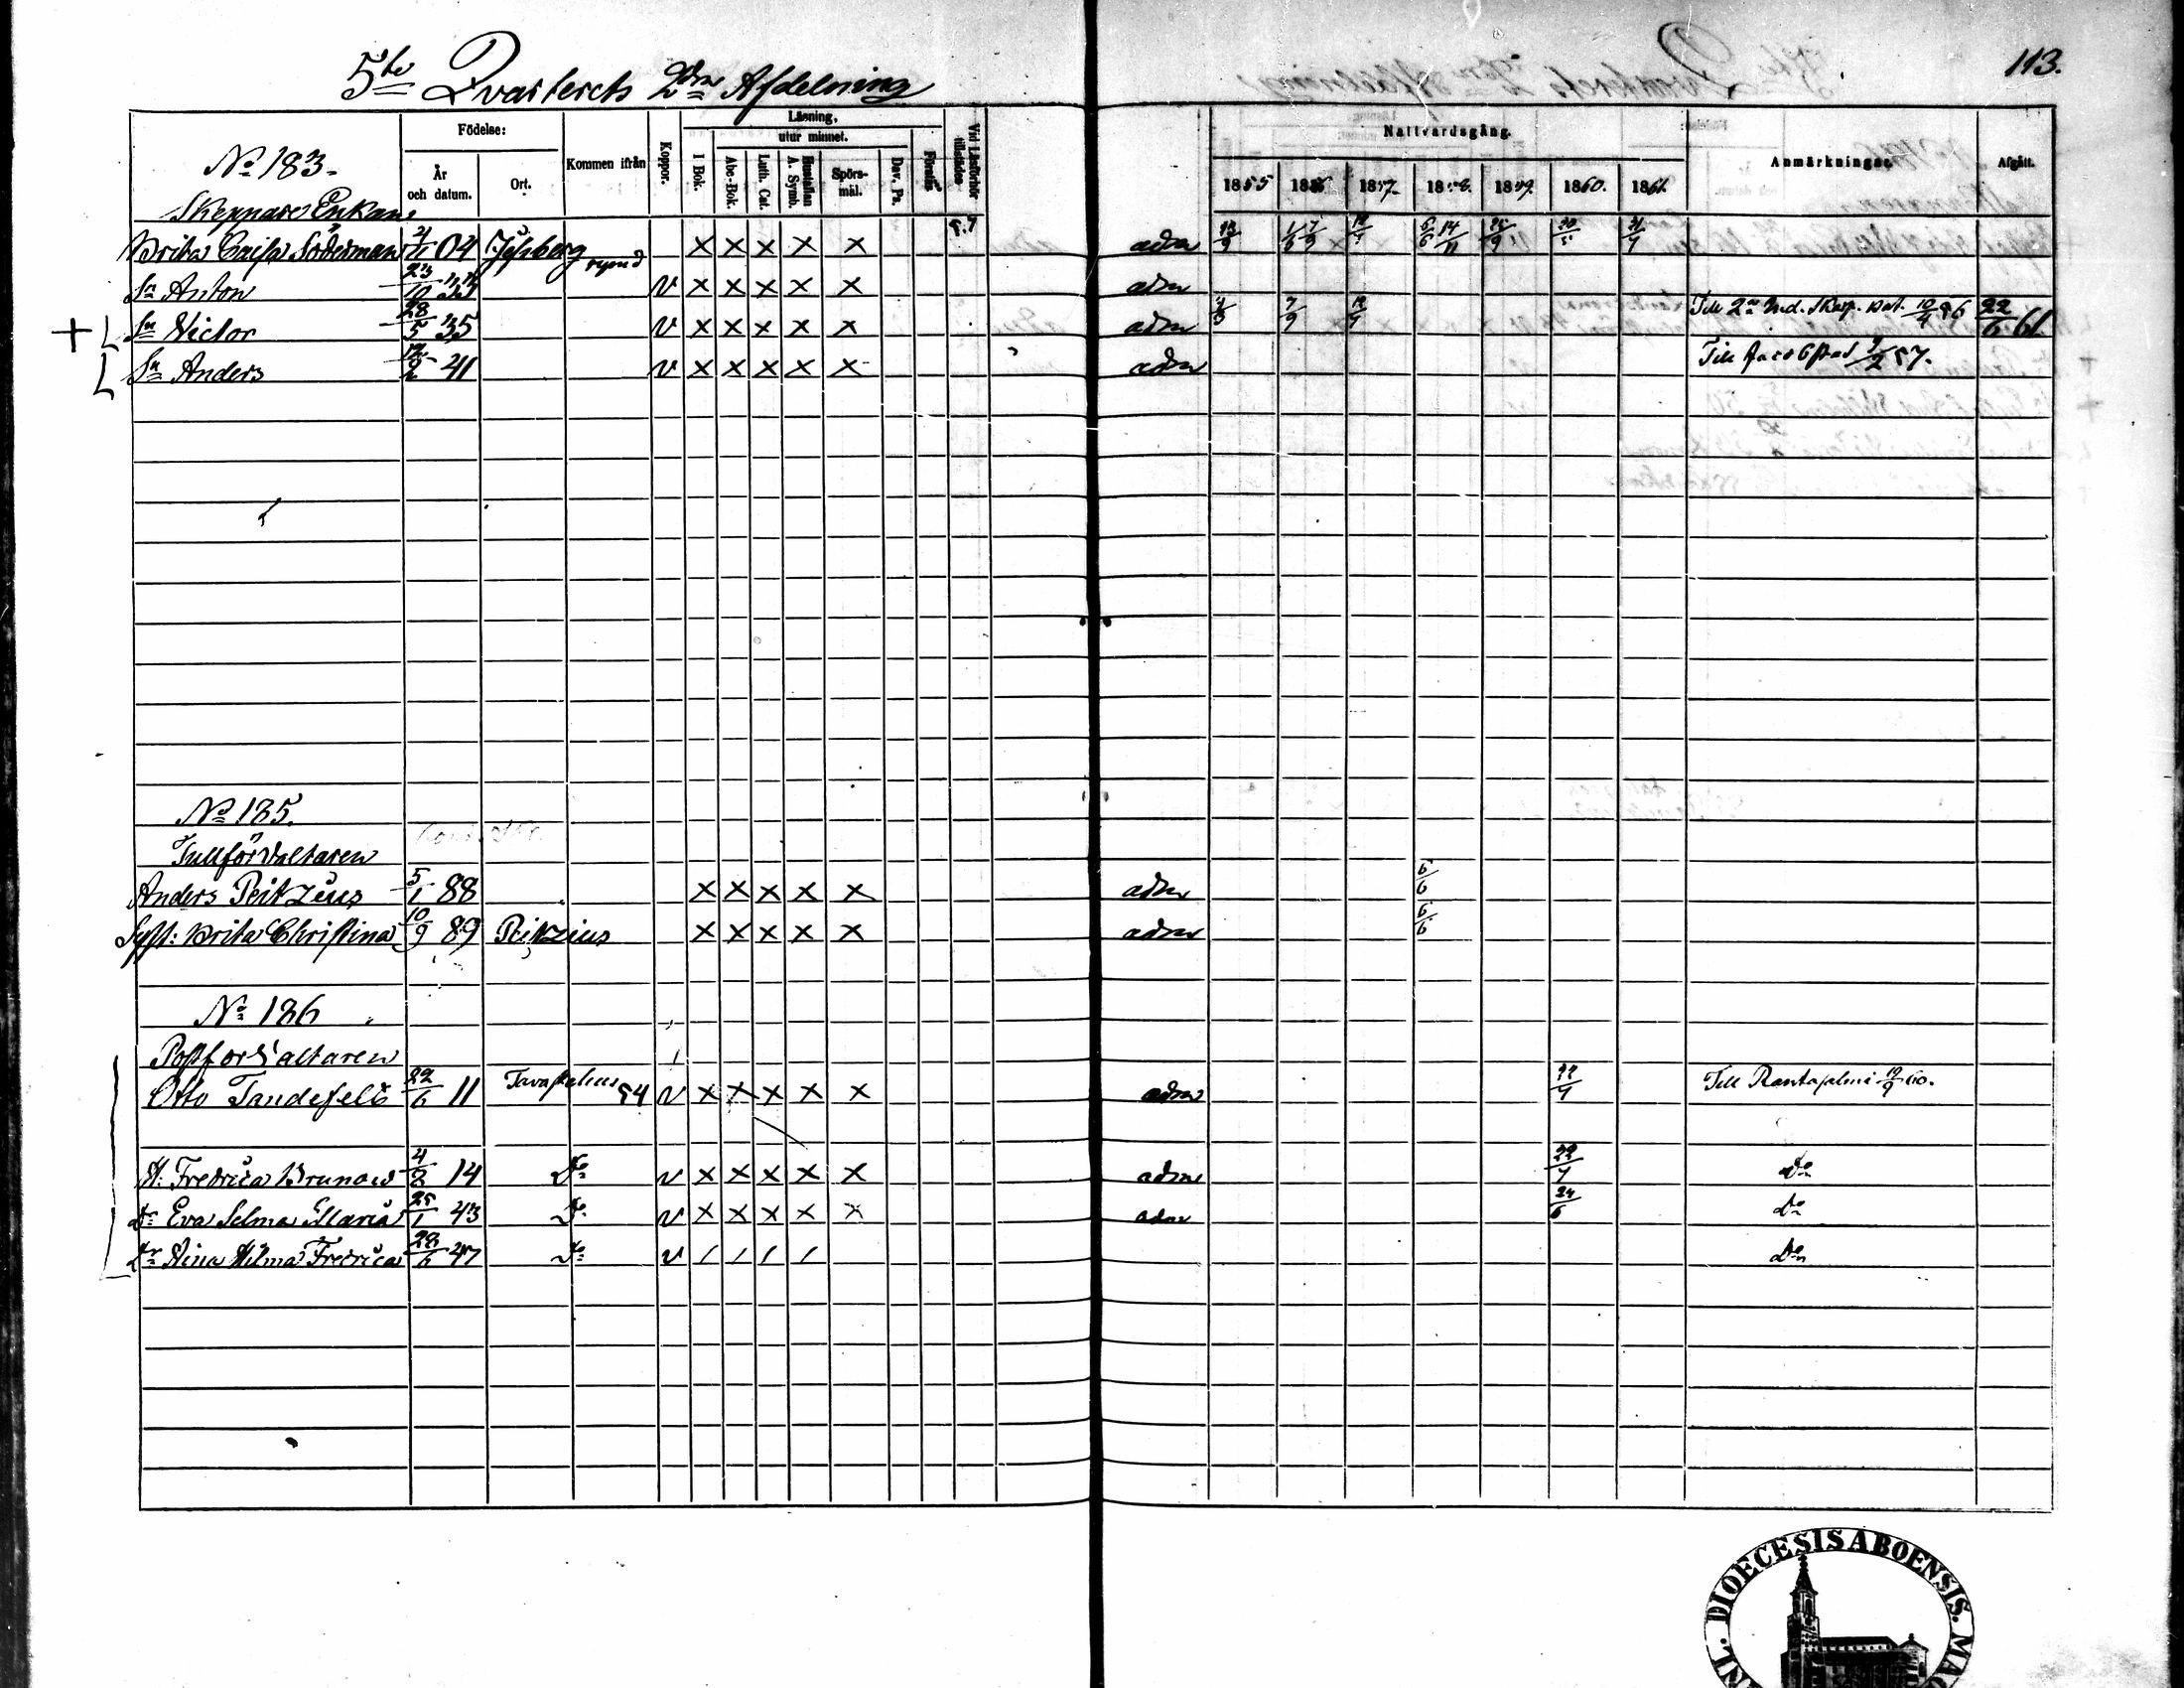 5te Qvarterets 2dra Afdelning
113.
No 183.
Födelse:
År och datum.
Ort.
Kommen ifrån
Koppor.
Läsning,
I Bok.
utur minnet.
Abc-Bok.
Luth. Cat.
Hustaflan A. Symb.
Spörs-mål.
Dav. Ps.
Förstår
Vid Läsförhör tillstädes
Nattvardsgång.
1855 1856 1857. 1858. 1859. 1860. 1861
Anmärkningar.
Afgått.
Skeppars Enkan
Brita Caisa Söderman 04 x x x x x adm
Sn Anton 23/10 33 v x x x x x adm
+ Sn Victor 28/5 35 v x x x x x adm 7/9 Till 2a Ind. Skarp. Bat. 56 22/6 61
Sn Anders 12/2 41 v x x x x x adm Till 57.
No 185.
Tullförvaltaren
Anders Peitzius 5/1 88 x x x x x adm 6/6
Syst: Brita Christina 10/9 89 Peitzius x x x x x adm 6/6
No 186
Postförvaltaren
Otto Tandefelt 22/6 11 Tavastehus 54 v x x x x x adm 22/7 Till Rantasalmi 60.
H. Fredrica Brunow 4/2 14 Do v x x x x x adm 22/7 do
dr Eva Selma Maria 25/1 43 Do v x x x x x adm 24/6 do
dr Aina Hilma Fredrica 28/6 47 Do v / / / / do
DIOECESIS ABOENSIS.